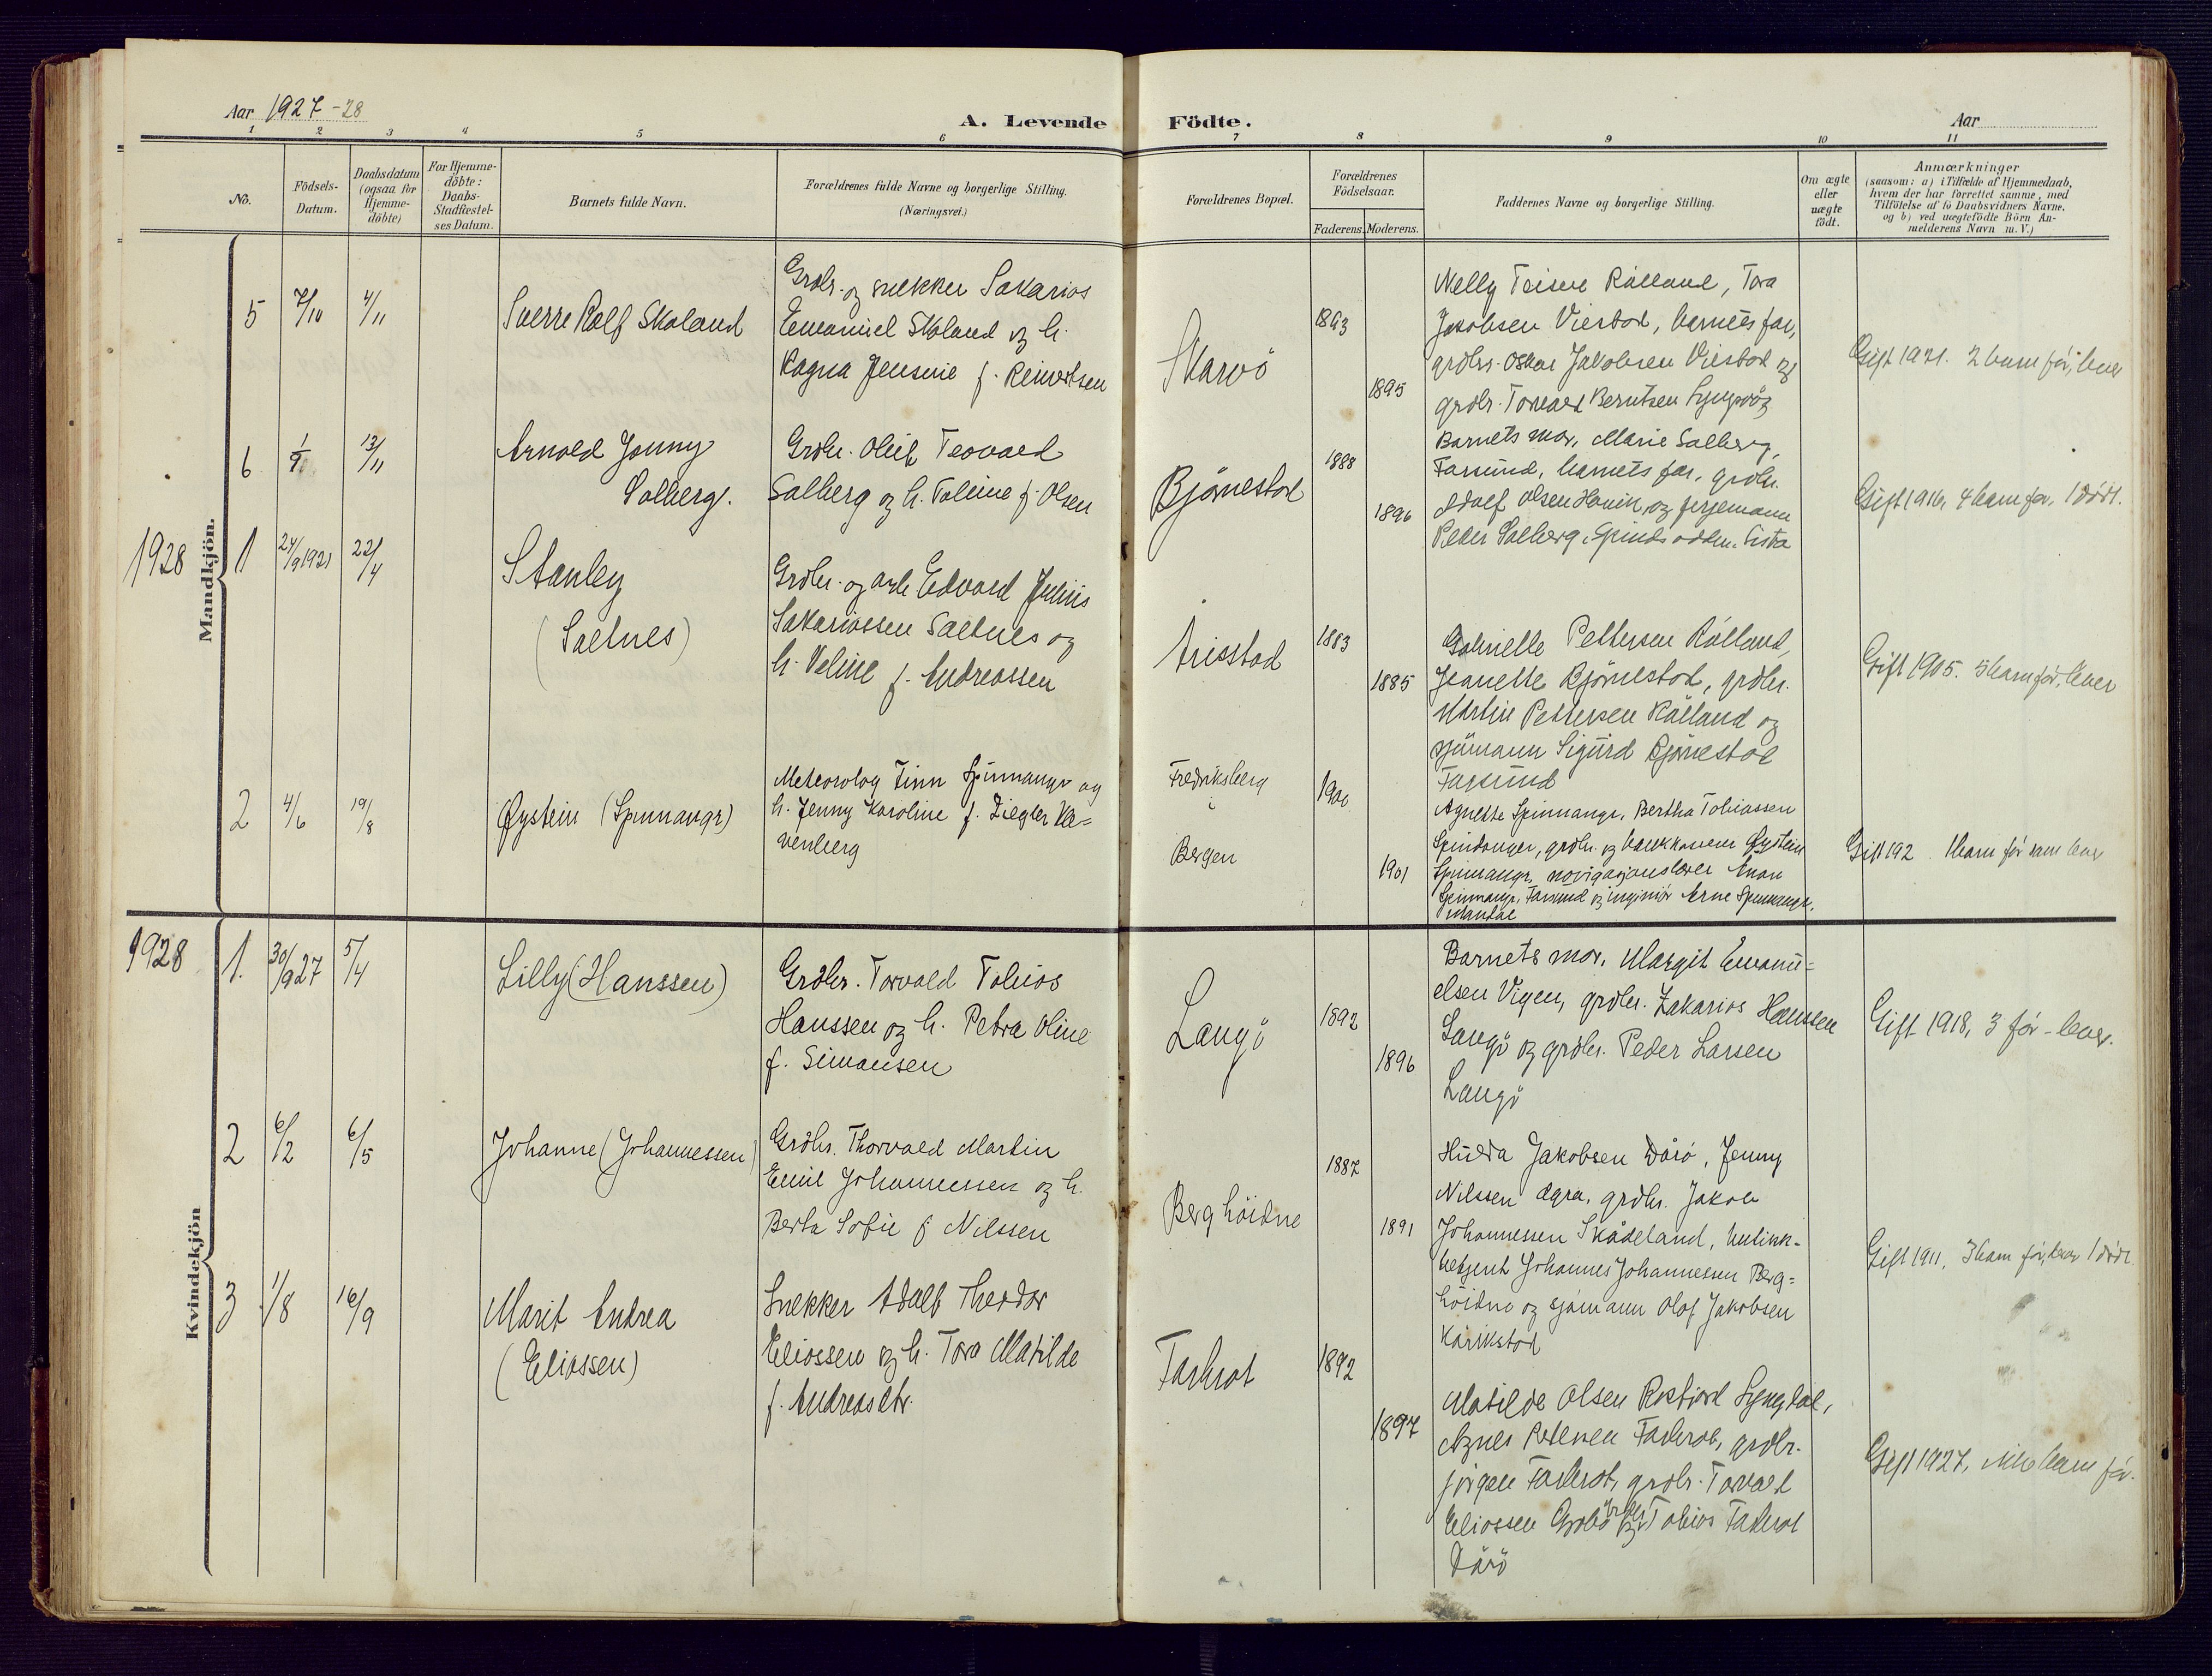 Aar 1927-28
A. Levende Födte.
Aar
1 2 3 4 5 6 7 8 9 10 11
No.
Födsels-Datum.
Daabsdatum (ogsaa for Hjemme-döbte)
For Hjemme-döbte: Daabs-Stadfæstel-ses Datum.
Barnets fulde Navn.
Forældrenes fulde Navne og borgerlige Stilling.
(Næringsvei.)
Forældrenes Bopæl.
Forældrenes Födselsaar.
Faderens. Moderens.
Faddernes Navne og borgerlige Stilling.
Om ægte eller uægte födt.
Anmærkninger
(saasom: a) i Tilfælde af Hjemmedaab,
hvem der har forrettet samme, med
Tilföielse af to Daabsvidners Navne,
og b) ved uægtefödte Börn An-
melderens Navn m. V.)
Mandkjön.
5 7/10 4/11
Sverre Rolf Skoland
Grdbr. og snekker Sakarias
Emanuel Skoland og h.
Ragna Jensine f. Reinertsen
Skarvö
1893
1895
Nelly Teisre Rålland, Tora
Jakobsen Viestad, barnets far,
grdbr. Oskar Jakobsen Viestad og
grdbr. Torvald Berntsen
Gift 1921. 2 barn før, lever
6 13/11
Arnold Jonny
Solberg.
Grdbr. Oluf Teovald
Solberg og h. Toline f. Olsen
Bjørnestad
1888
1896
Barnets mor, Marie Solberg,
Farsund, barnets far, grdbr.
Adolf Olsen Hauen og ferjemann
Peder Solberg, Spindsodden, Lista
Gift 1916, 4 barn før, 1 dødt.
1928
1 24/9 1921 22/4
Stanley
(Saltnes)
Grdbr. og arb. Edvard Julius
Sakariassen Saltnes og
h. Veline f. Andreassen
Arisstad
1883
1885
Gabrielle Pettersen Rålland,
Jeanette Bjørnestad, grdbr.
Martin Pettersen Rålland og
sjømann Sigurd Bjørnestad
Farsund
Gift 1905. 5 barn før, lever
2 4/6 19/8
Øystein (Spinnangr)
Meteorolog Finn Spinnangr og
h. Jenny Karoline f. Ziegler Ra=
venberg
Fredriksberg
i
Bergen
1900
1901
Agnethe Spinnangr, Bertha Tobiassen
Spindanger, grdbr. og bankkasserer Øystein
Spinnangr, navigasjonslærer Anan
Spinnangr, Farsund og ingeniør Arne Spinnangr.
Mandal
Gift 192 . 1 barn før som lever
Kvindekjön
1928
1. 30/9 27 5/4
Lilly (Hanssen)
Grdbr. Torvald Tobias
Hanssen og h. Petra Oline
f. Simonsen
Langø
1892
1896
Barnets mor, Margit Emanu=
elsen Vigen, grdbr. Zakarias Hanssen
Langø og grdbr. Peder Larsen
Langø
Gift 1918, 3 før - lever.
2 6/2 6/5
Johanne (Johannessen)
Grdbr. Thorvald Martin
Emil Johannessen og h.
Berta Sofie f Nilssen
Berghöidne
1887
1891
Hulda Jakobsen Dårø, Jenny
Nilssen Agra, grdbr. Jakob
Johannessen Skådeland,
Johannes Johannessen Berg=
höidne og sjømann Olaf Jakobsen
Kårikstad
Gift 1911, 3 barn før, lever 1 dødt.
3 1/8 16/9
Marit Andrea
(Eliassen)
Snekker Adolf Theodor
Eliassen og h. Tora Matilde
f. Andreasdtr.
Farbrot
1892
1897
Matilde Olsen Rosfjord Lyngdal,
Agnes Petersen Farbrot, grdbr.
Jørgen Farbrot, grdbr. Torvald
Eliassen og Tobias Farbrot
Dårø
Gift 1927, ikke barn før.